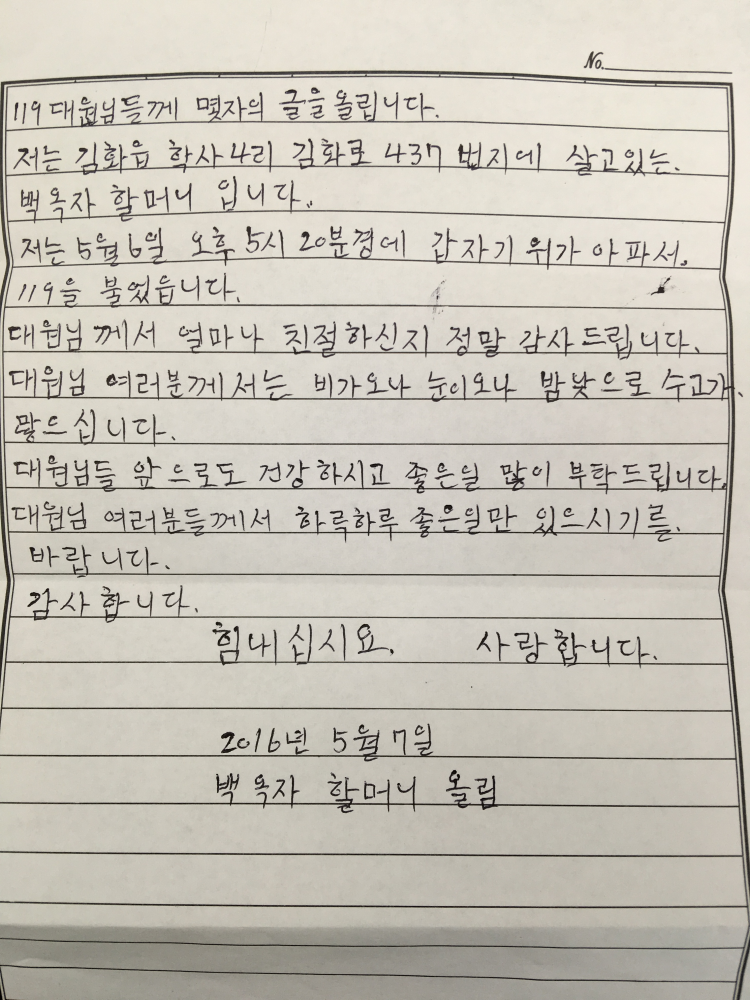 No.
119대원님들께 몇자의 글을 올립니다.
저는 김화읍 학사4리 김화로 437 번지에 살고있는.
백옥자 할머니 입니다.
저는 5월6일 오후 5시 20분경에 갑자기 위가 아파서.
119을 불렀읍니다.
대원님께서 얼마나 친절하신지 정말 감사드립니다.
대원님 여러분께서는 비가오나 눈이오나 밤낮으로 수고가.
많으십니다.
대원님들 앞으로도 건강하시고 좋은일 많이 부탁드립니다.
대원님 여러분들께서 하루하루 좋은일만 있으시기를.
바랍니다.
감사합니다.
힘내십시요. 사랑합니다.
2016년 5월 7일
백옥자 할머니 올림